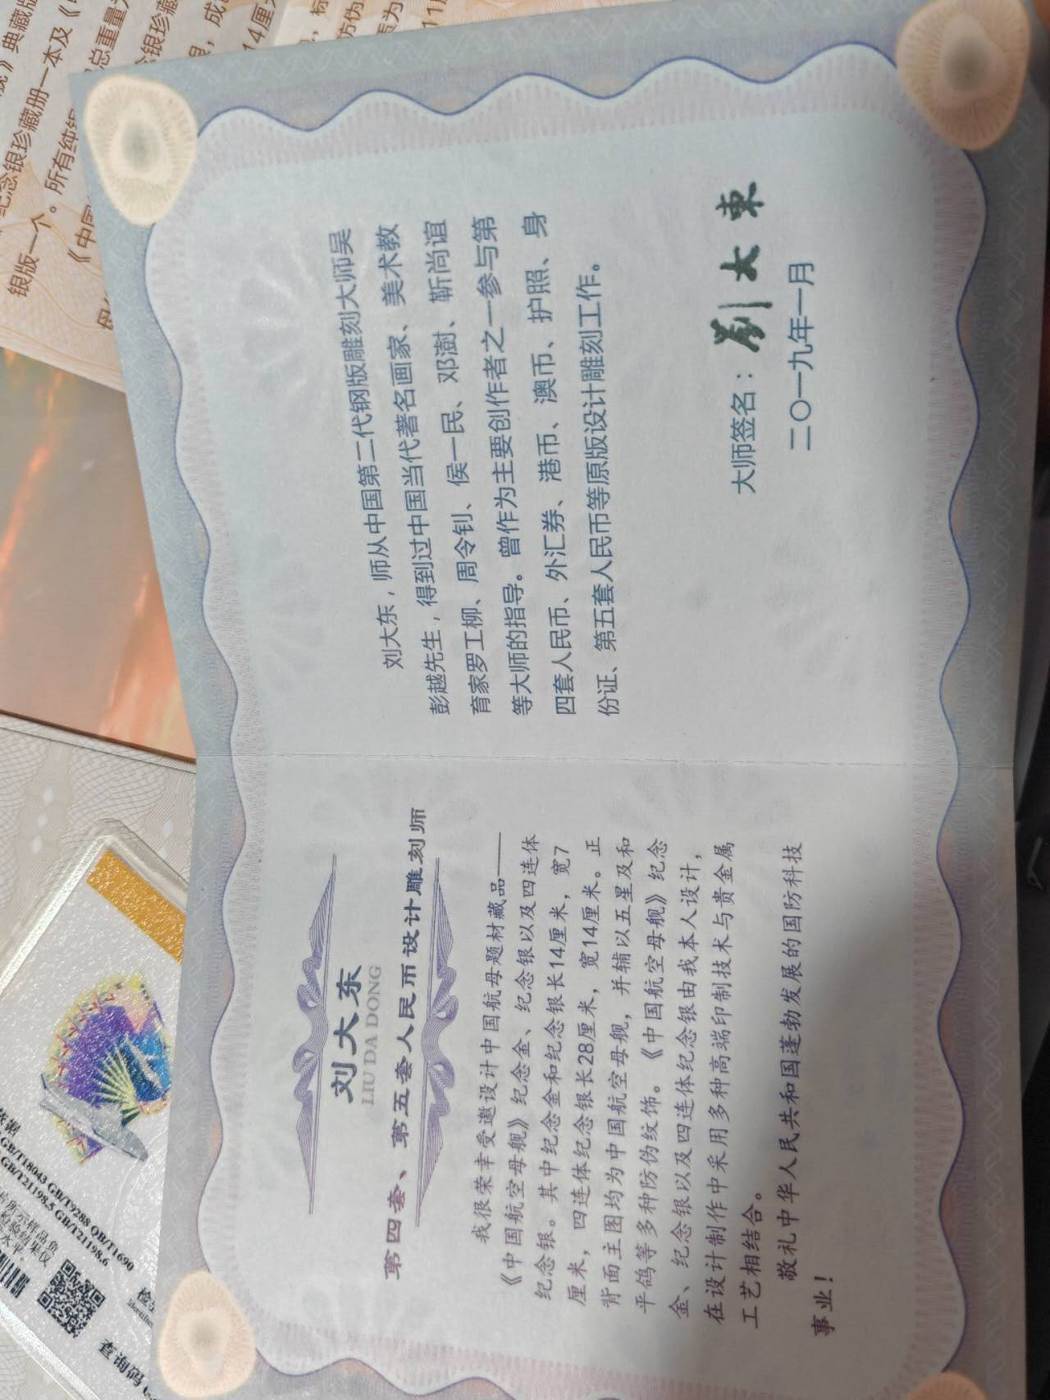 刘大东
LIU DA DONG
第四套、第五套人民币设计雕刻师
我很荣幸受邀设计中国航母题材藏品——
《中国航空母舰》纪念金、纪念银以及四连体
纪念银。其中纪念金和纪念银长14厘米，宽7
厘米，四连体纪念银长28厘米，宽14厘米。正
背面主图均为中国航空母舰，并辅以五星及和
平鸽等多种防伪纹饰。《中国航空母舰》纪念
金、纪念银以及四连体纪念银由我本人设计，
在设计制作中采用多种高端印制技术与贵金属
工艺相结合。
敬礼中华人民共和国蓬勃发展的国防科技
事业！
刘大东，师从中国第二代钢版雕刻大师吴
彭越先生，得到过中国当代著名画家、美术教
育家罗工柳、周令钊、侯一民、邓澍、靳尚谊
等大师的指导。曾作为主要创作者之一参与第
四套人民币、外汇券、港币、澳币、护照、身
份证、第五套人民币等原版设计雕刻工作。
大师签名：刘大東
二〇一九年一月
念银珍藏册一本及《
银版一个。所有纯
总重量
《中国
GB/T18043 GB/T9288 QB/T1690
GB/T21198.5 GB/T21198.6
查询码